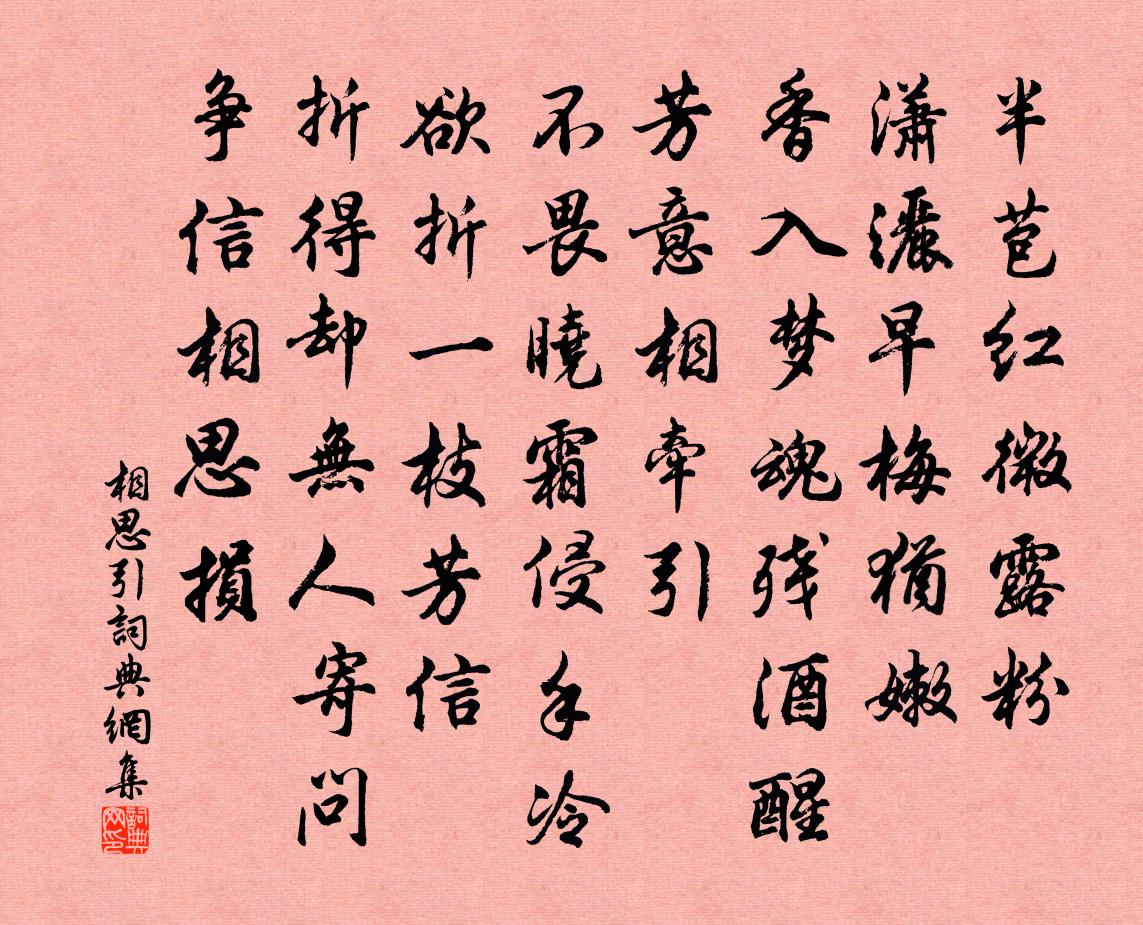 半苞红微露粉
瀟灑早梅猶嫩
香入梦魂残酒醒
芳意相牵引
不畏曉霜侵手冷
欲折一枝芳信
折得却無人寄問
争信相思損
相思引詞典網集
詞典
网印